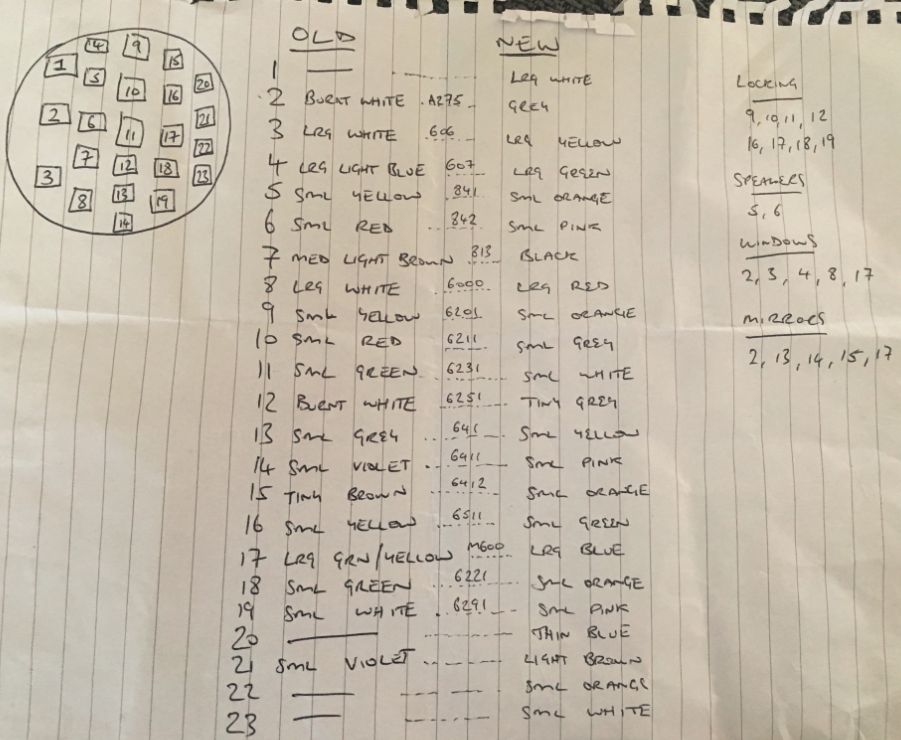 14 9 15
1 5 10 16 20
2 6 11 17 21
22
3 7 12 18 23
8 13 19
14
OLD NEW
1 — LRG WHITE
2 BURNT WHITE A275 GREY
3 LRG WHITE 606 LRG YELLOW
4 LRG LIGHT BLUE 607 LRG GREEN
5 SML YELLOW 841 SML ORANGE
6 SML RED 842 SML PINK
7 MED LIGHT BROWN 813 BLACK
8 LRG WHITE 6000 LRG RED
9 SML YELLOW 6201 SML ORANGE
10 SML RED 6211 SML GREY
11 SML GREEN 6231 SML WHITE
12 BURNT WHITE 6251 TINY GREY
13 SML GREY 641 SML YELLOW
14 SML VIOLET 6411 SML PINK
15 TINY BROWN 6412 SML ORANGE
16 SML YELLOW 6511 SML GREEN
17 LRG GRN/YELLOW M600 LRG BLUE
18 SML GREEN 6221 SML ORANGE
19 SML WHITE 6291 SML PINK
20 — THIN BLUE
21 SML VIOLET LIGHT BROWN
22 — SML ORANGE
23 — SML WHITE
LOCKING
9, 10, 11, 12
16, 17, 18, 19
SPEAKERS
5, 6
WINDOWS
2, 3, 4, 8, 17
MIRRORS
2, 13, 14, 15, 17